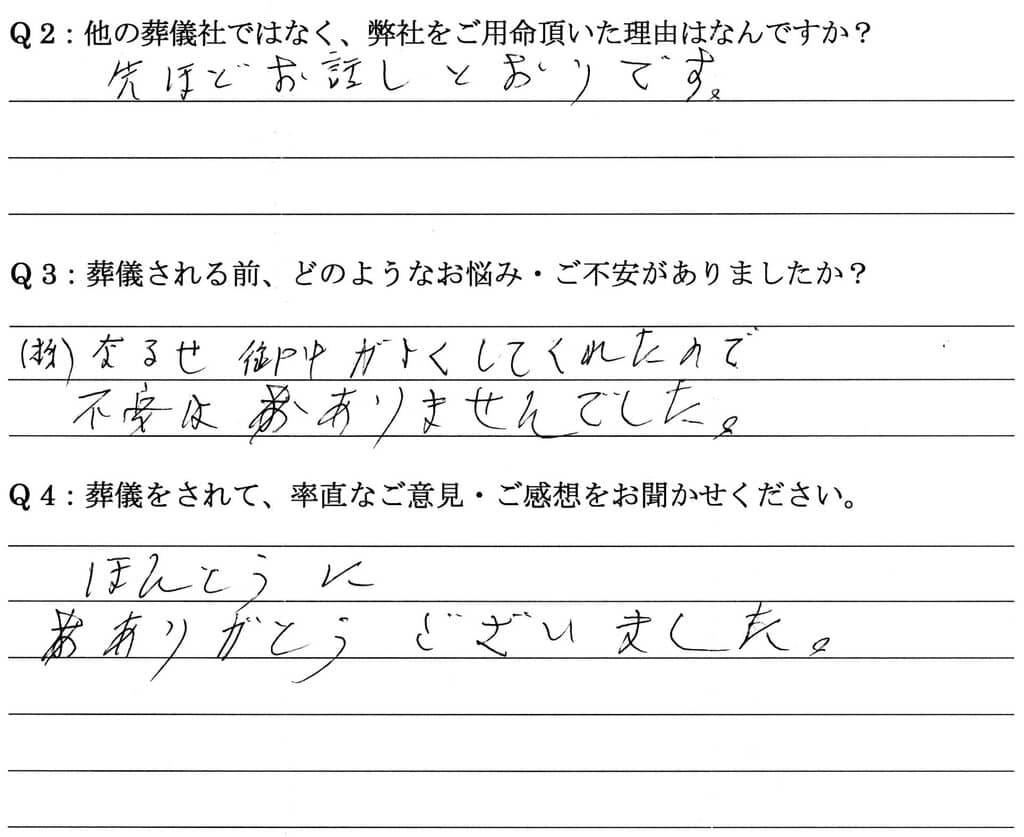 Q2：他の葬儀社ではなく、弊社をご用命頂いた理由はなんですか？
先ほどお話しとおりです。
Q3：葬儀される前、どのようなお悩み・ご不安がありましたか？
(株)なるせ がよくしてくれたので
不安は ありませんでした。
Q4：葬儀をされて、率直なご意見・ご感想をお聞かせください。
ほんとうに
ありがとう ございました。